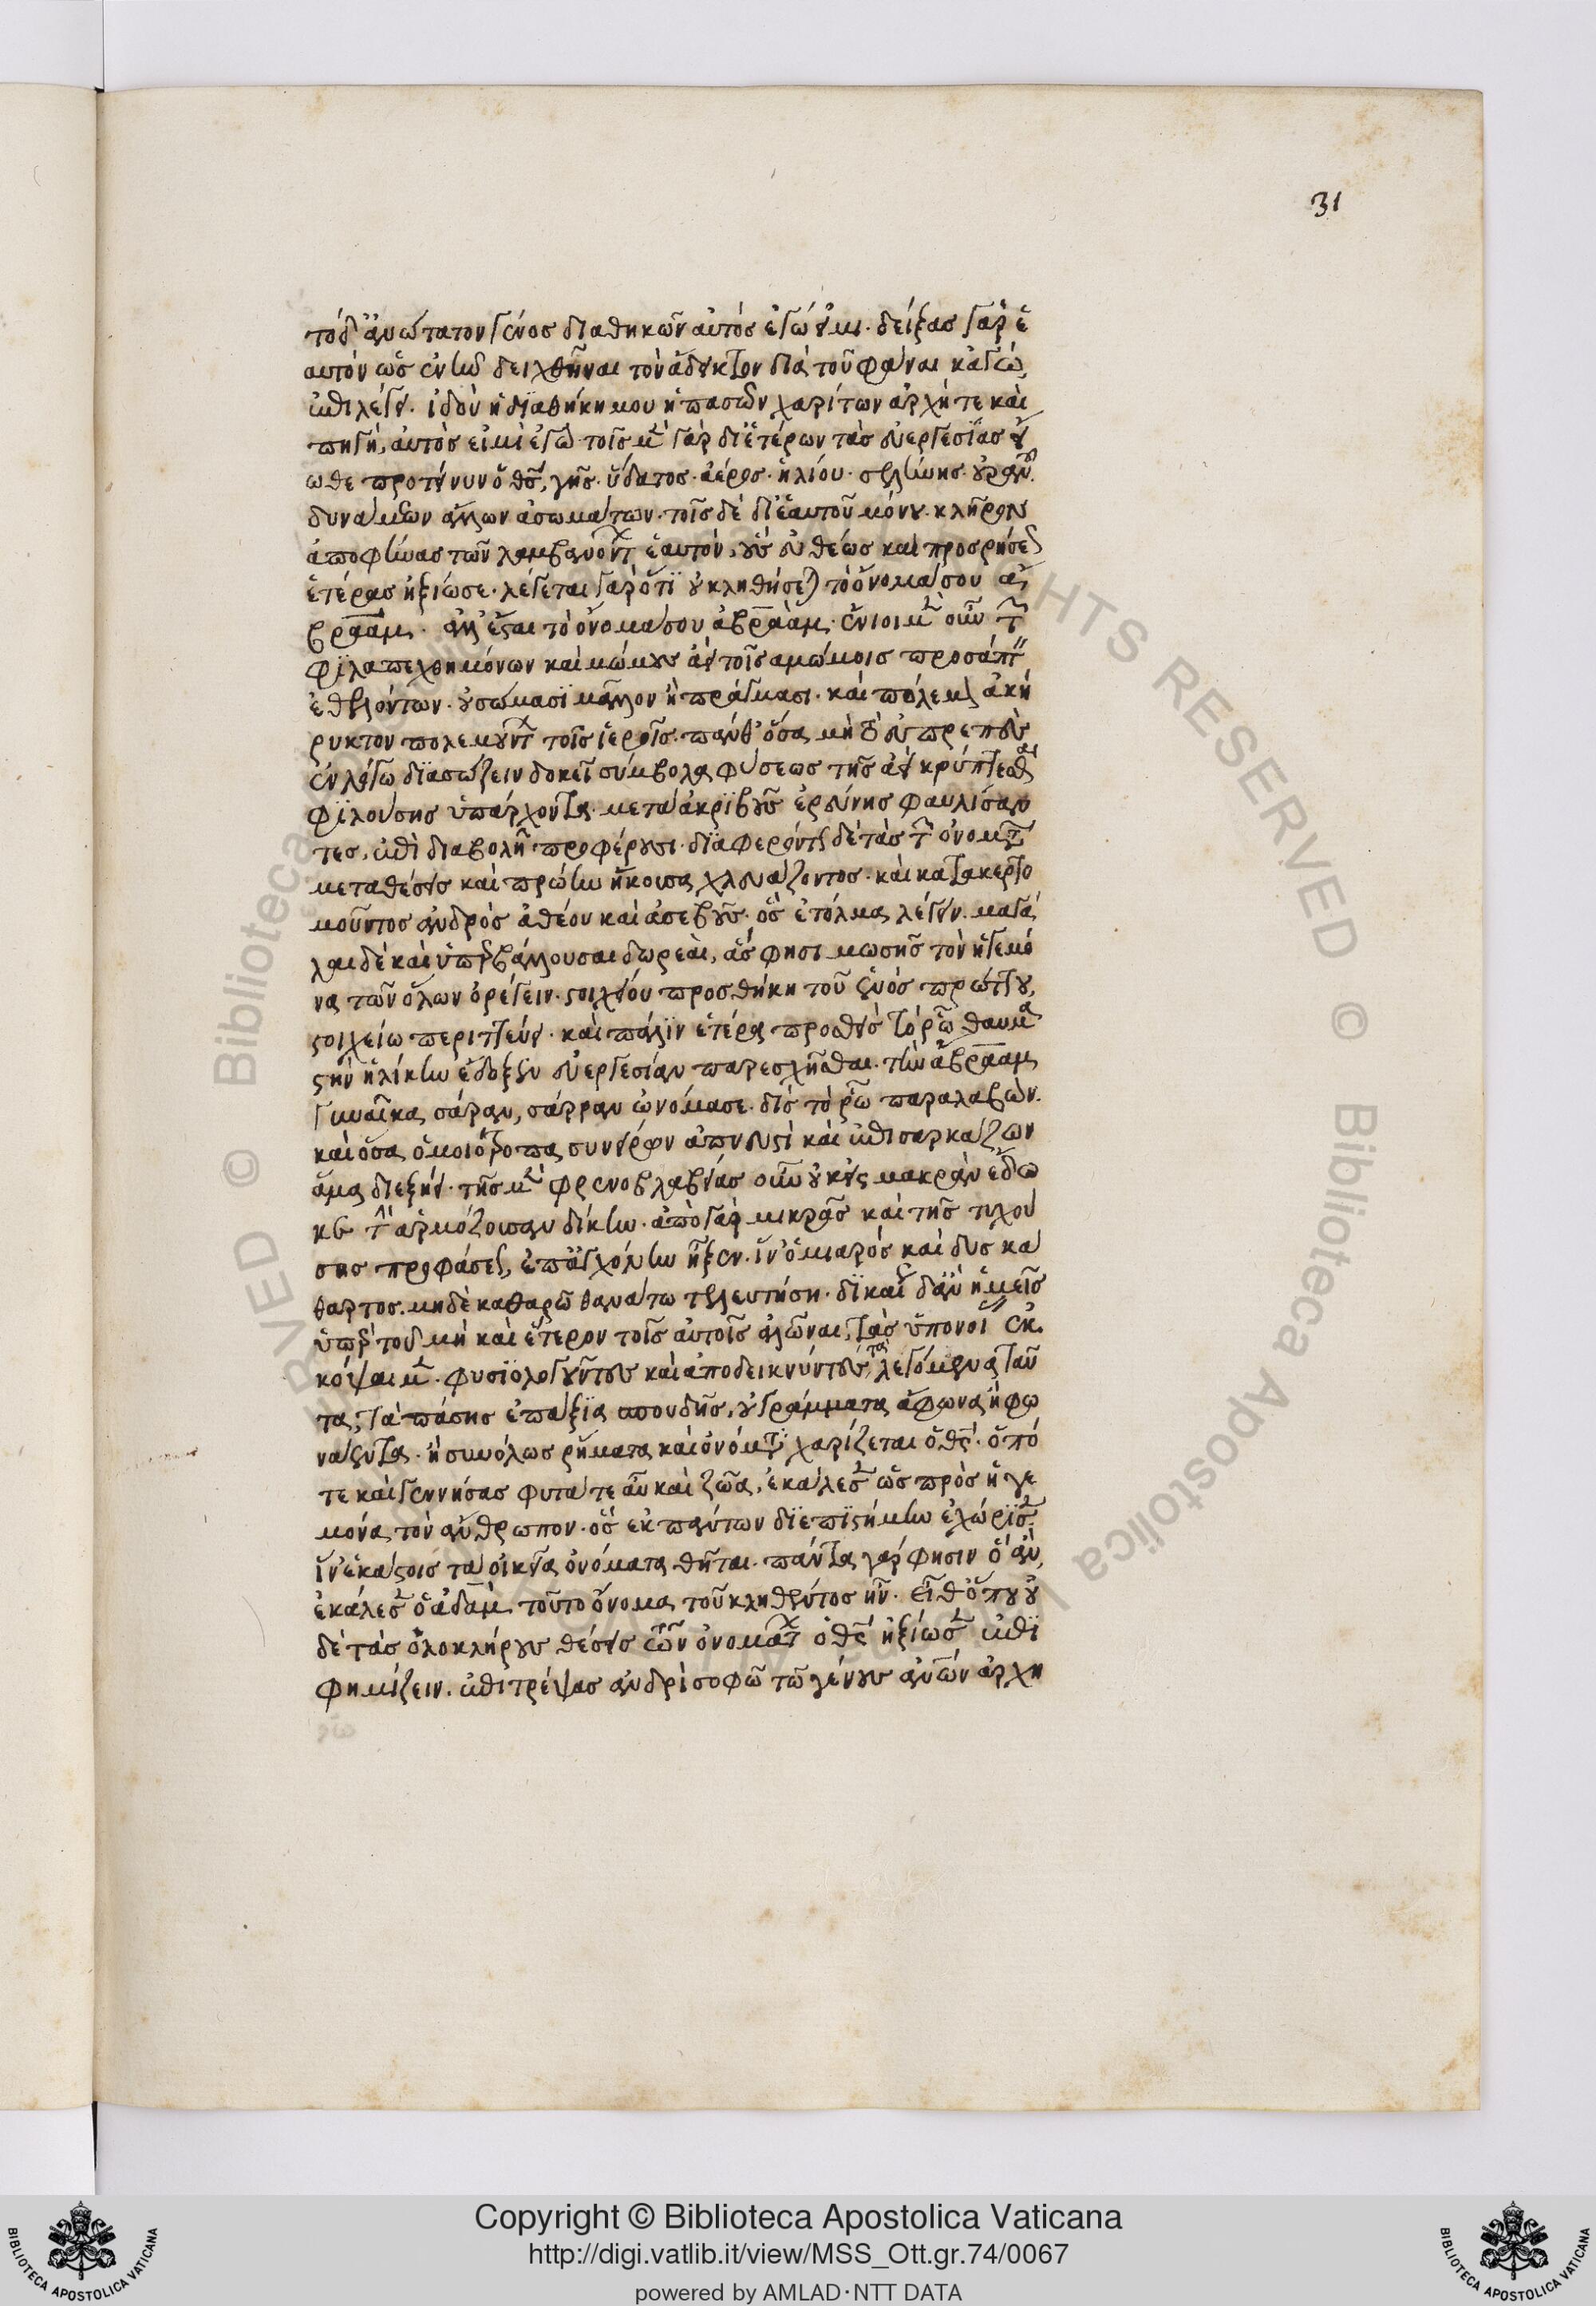 31
τόδ' ἀνωτατον γένος διαθηκῶν αὐτὸς ἐγώ εἰμι. δείξας γὰρ ἑ
αυτόν ὡς ἐνῆν δειχθῆναι τὸν ἄδεικτον διὰ τοῦ φάναι κἀγὼ,
ἐπιλέγει. ἰδοὺ ἡ διαθήκη μου ἡ πασῶν χαρίτων ἀρχή τε καὶ
πηγὴ, αὐτὸς εἰμὶ ἐγώ. τοῖς μὲν γὰρ δι' ἑτέρων τὰς εὐεργεσίας εἴ
ωθε προτείνειν ὁ θς, γῆς. ὕδατος. ἀέρος. ἡλίου. σελήνης. οὐρανοῦ.
δυνάμεων ἄλλων ἀσωμάτων. τοῖς δὲ δι' ἑαυτοῦ μόνου. κλῆρον
ἀποφήνας τῶν λαμβανόντων ἑαυτὸν, οὓς εὐθέως καὶ προσρήσεως
ἑτέρας ἠξίωσε. λέγεται γὰρ ὅτι οὐ κληθήσεται τὸ ὄνομά σου ἄ
βρααμ. ἀλλ' ἔσται τὸ ὄνομά σου ἀβραάμ. ἔνιοι μὲν οὖν τῶν
φιλαπεχθημόνων καὶ μώμους ἀεὶ τοῖς αμώμοις προσάπτειν
ἐθελόντων. οὐ σώμασι μᾶλλον ἢ πράγμασι. καὶ πόλεμον ἀκή
ρυκτον πολεμούντων τοῖς ἱεροῖς. πάνθ' ὅσα μὴ τὸ εὐπρεπὲς
ἐν λόγω διασώζειν δοκεῖ σύμβολα φύσεως τῆς ἀεὶ κρύπτεσθαι
φιλούσης ὑπάρχοντα. μετὰ ἀκριβοῦς ἐρεύνης φαυλίσαν
τες, ἐπὶ διαβολῆ προφέρουσι. διαφερόντως δὲ τὰς τῶν ὀνομάτων
μεταθέσεις καὶ πρώην ἤκουσα χλευάζοντος. καὶ κατακερτο
μοῦντος ἀνδρὸς ἀθέου καὶ ἀσεβοῦς. ὃς ἐτόλμα λέγειν. μεγά
λαι δὲ καὶ ὑπερβάλλουσαι δωρεαὶ, ἅς φησι μωσῆς τὸν ἡγεμό
να τῶν ὅλων ὀρέγειν. στοιχείου προσθήκη τοῦ ἑνὸς πρώτου,
στοιχείω περιττεύει. καὶ πάλιν ἑτέρα προσθεὶς τὸ ῥῶ θαυμα
στὴν ἡλίκην ἔδοξεν εὐεργεσίαν παρεσχῆσθαι. τὴν ἀβραὰμ
γυναῖκα σάραν, σάρραν ὠνόμασε. δὶς τὸ ῥῶ παραλαβὼν.
καὶ ὅσα ὁμοιότροπα συνείρων ἀπνευστὶ καὶ ἐπισαρκάζων
ἅμα διεξήει. τῆς μὲν φρενοβλαβείας οὖν οὐκ εἰς μακρὰν ἔδω
κε τὴν ἁρμόζουσαν δίκην. ἀπὸ γὰρ μικρᾶς καὶ τῆς τυχού
σης προφάσεως, ἐπ' ἀγχόνην ἦξεν. ἵν' ὁ μιαρὸς καὶ δυσκά
θαρτος. μηδὲ καθαρῶ θανάτω τελευτήση. δίκαιως δ' ἂν ἡμεῖς
ὑπὲρ τοῦ μὴ καὶ ἕτερον τοῖς αὐτοῖς ἁλῶναι, τὰς ὑπονοίας ἐκ
κόψαιμεν. φυσιολογοῦντες καὶ ἀποδεικνύντες τὰ λεγόμενα ταῦ
τα, τὰ πάσης ἐπάξια σπουδῆς, οὐ γράμματα ἄφωνα ἢ φω
νάεντα. ἢ συνόλως ῥήματα καὶ ὀνόματα χαρίζεται ὁ θς. ὁπό
τε καὶ γεννήσας φυτά τε αὖ καὶ ζῶα, ἐκάλεσεν ὡς πρὸς ἡγε
μόνα τὸν ἄνθρωπον. ὃς ἐκ πάντων δι' ἐπιστήμην ἐχώρισεν.
ἵν' ἑκάστοις τὰ οἰκεῖα ὀνόματα θῆται. πάντα γάρ φησιν ὃ ἂν,
ἐκάλεσεν ὁ ἀδὰμ, τοῦτο ὄνομα τοῦ κληθέντος ἦν. εἶθ' ὅπου οὐ
δὲ τὰς ὁλοκλήρους θέσεις τῶν ὀνομάτων ὁ θς ἠξίωσεν ἐπι
φημίζειν. ἐπιτρέψας ἀνδρὶ σοφῶ τῶ γένους ἀνων ἀρχη
Copyright © Biblioteca Apostolica Vaticana
http://digi.vatlib.it/view/MSS_Ott.gr.74/0067
powered by AMLAD·NTT DATA
BIBLIOTECA APOSTOLICA VATICANA
BIBLIOTECA APOSTOLICA VATICANA